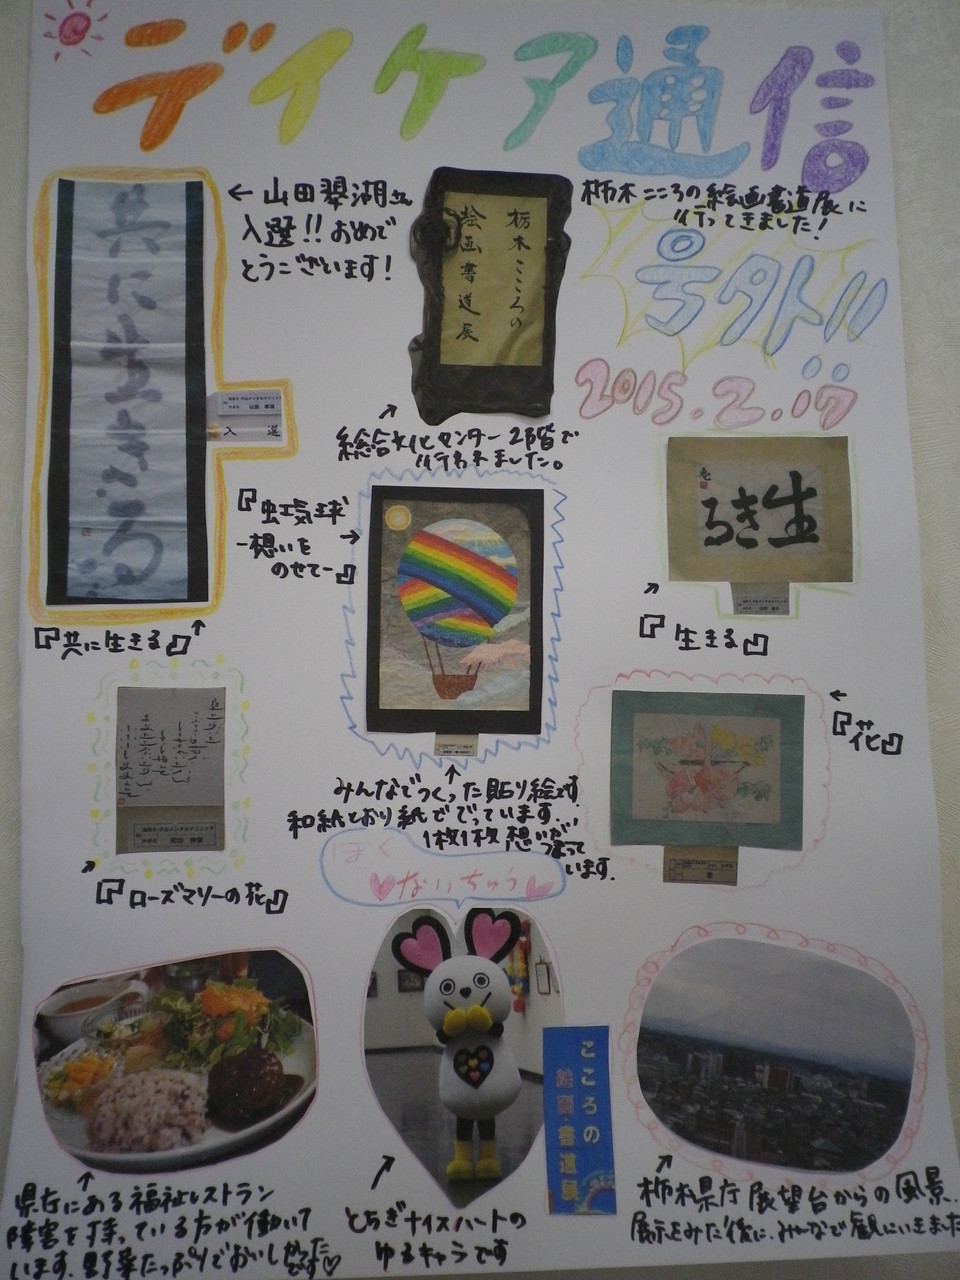 デイケア通信
栃木こころの絵画書道展に
行ってきました！
号外!!
2015.2.17
← 山田翠湖さん
入選!! おめで
とうございます！
共に生きる
入選
『共に生きる』
栃木こころの
絵画書道展
総合文化センター2階で
行われました。
『虹気球
-想いを
のせて-』
みんなでつくった貼り絵です。
和紙とおり紙でできています。
1枚1枚想いが
つまって
います。
生きる
『生きる』
『花』
『ローズマリーの花』
ぼく
ないちゅう
県庁にある福祉レストラン
障害を持っている方が働いて
います。野菜たっぷりでおいしかった
です♡
とちぎナイスハートの
ゆるキャラです
こころの
絵画・書道展
栃木県庁展望台からの風景。
展示をみた後に、みんなで観にいきました